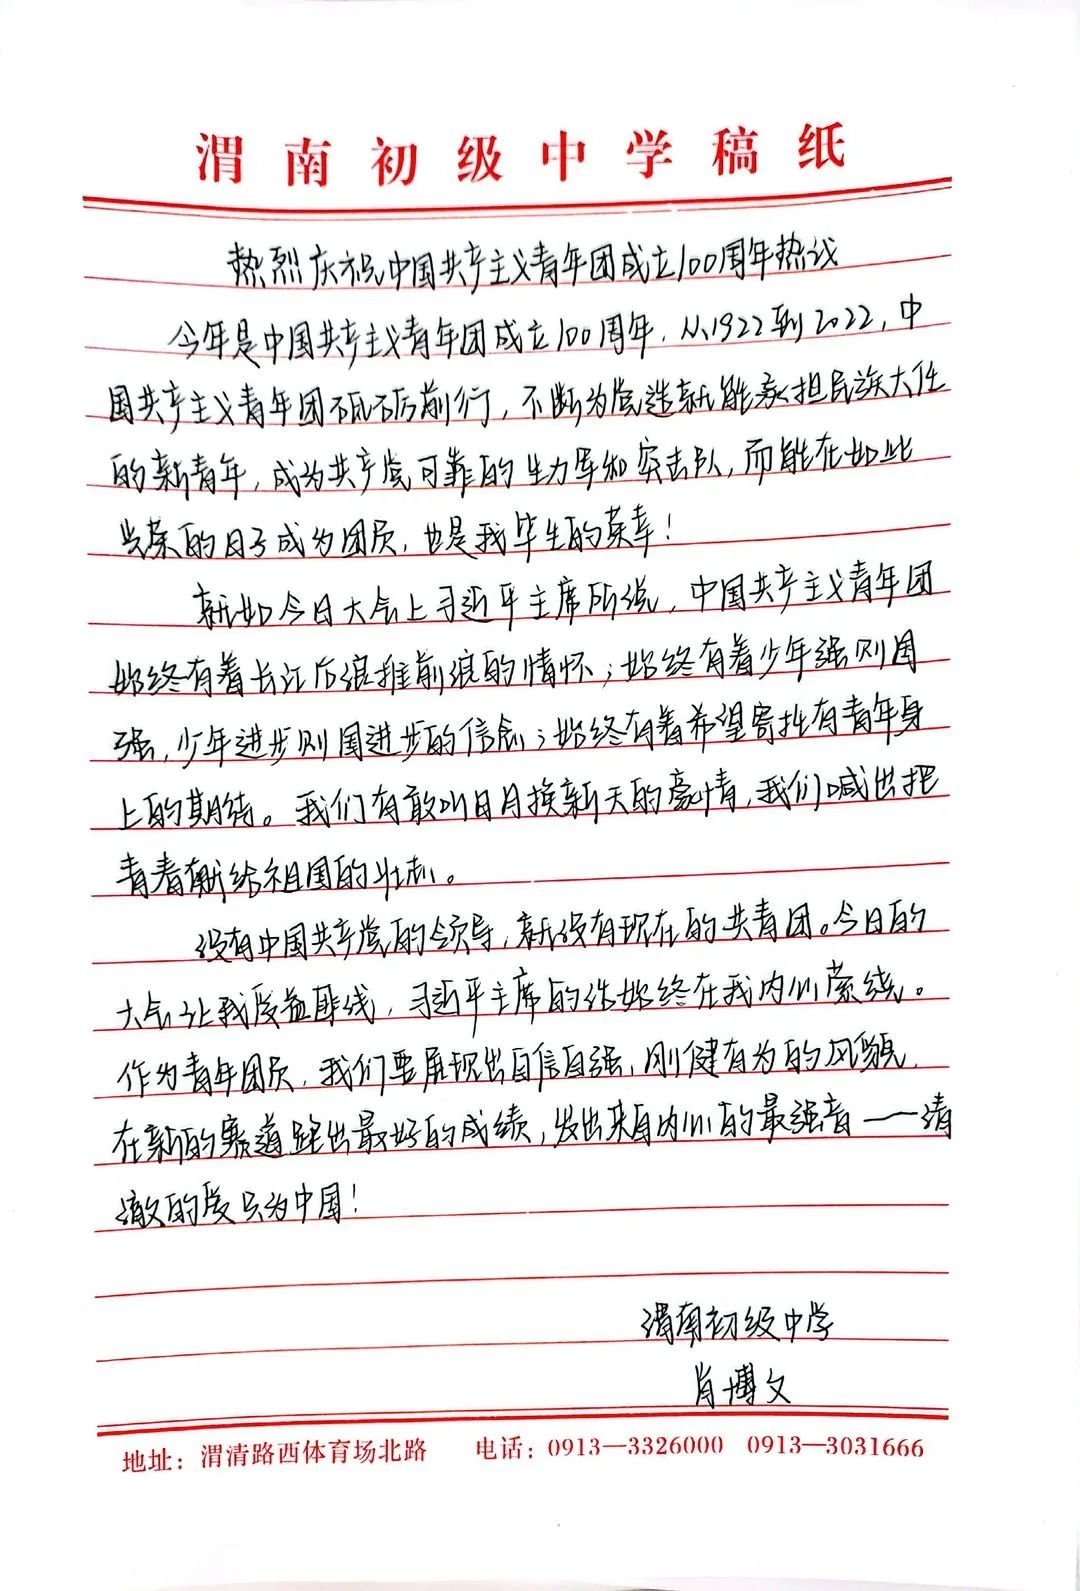 渭南初级中学稿纸
热烈庆祝中国共产主义青年团成立100周年热议
今年是中国共产主义青年团成立100周年，从1922到2022，中
国共产主义青年团砥砺前行，不断为党造就能承担民族大任
的新青年，成为共产党可靠的生力军和突击队，而能在如此
光荣的日子成为团员，也是我毕生的荣幸！
就如今日大会上习近平主席所说，中国共产主义青年团
始终有着长江后浪推前浪的情怀；始终有着少年强则国
强，少年进步则国进步的信念；始终有着希望寄托有青年身
上的期待。我们有敢叫日月换新天的豪情，我们喊出把
青春献给祖国的壮志。
没有中国共产党的领导，就没有现在的共青团。今日的
大会让我受益匪浅，习近平主席的话始终在我内心萦绕。
作为青年团员，我们要展现出自信自强，刚健有为的风貌，
在新的赛道跑出最好的成绩，发出来自内心的最强音——清
澈的爱只为中国！
渭南初级中学
肖博文
地址：渭清路西体育场北路 电话：0913—3326000 0913—3031666